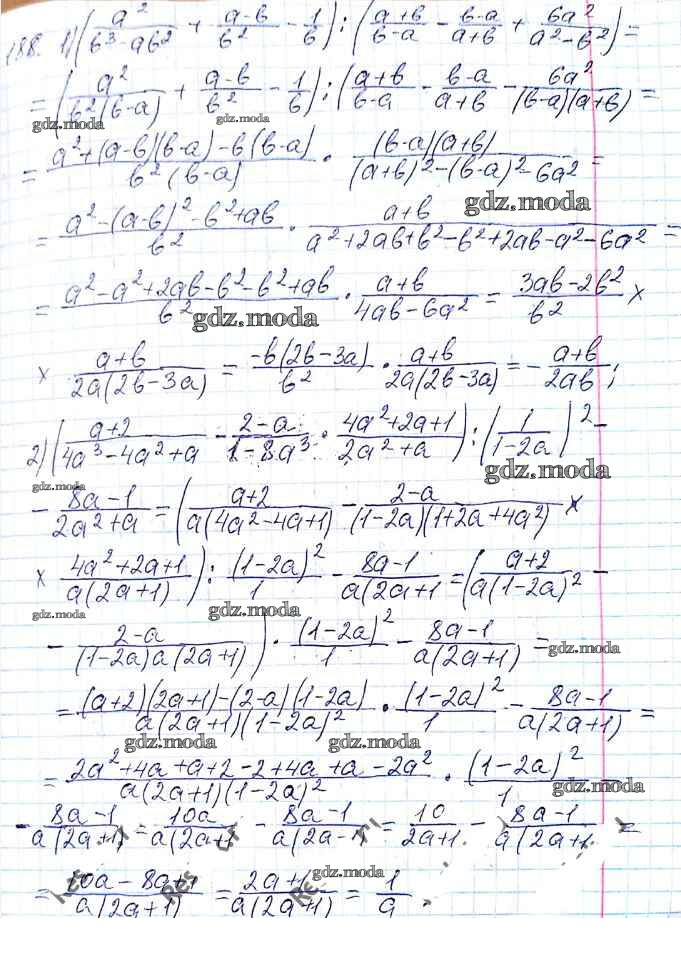 188. 1) (a²/(в³-aв²) + (a-в)/в² - 1/в) : ((a+в)/(в-a) - (в-a)/(a+в) + 6a²/(a²-в²)) =
= (a²/(в²(в-a)) + (a-в)/в² - 1/в) : ((a+в)/(в-a) - (в-a)/(a+в) - 6a²/((в-a)(a+в))) =
gdz.moda gdz.moda
= (a²+(a-в)(в-a)-в(в-a))/(в²(в-a)) · ((в-a)(a+в))/((a+в)²-(в-a)²-6a²) =
gdz.moda
= (a²-(a-в)²-в²+aв)/в² · (a+в)/(a²+2aв+в²-в²+2aв-a²-6a²) =
= (a²-a²+2aв-в²-в²+aв)/в² · (a+в)/(4aв-6a²) = (3aв-2в²)/в² ×
gdz.moda
× (a+в)/(2a(2в-3a)) = (-в(2в-3a))/в² · (a+в)/(2a(2в-3a)) = -(a+в)/(2aв);
2) ((a+2)/(4a³-4a²+a) - (2-a)/(1-8a³) · (4a²+2a+1)/(2a²+a)) : (1/(1-2a))² -
gdz.moda gdz.moda
- (8a-1)/(2a²+a) = ((a+2)/(a(4a²-4a+1)) - (2-a)/((1-2a)(1+2a+4a²)) ×
× (4a²+2a+1)/(a(2a+1))) : (1-2a)²/1 - (8a-1)/(a(2a+1) = ((a+2)/(a(1-2a)² -
gdz.moda gdz.moda gdz.moda
- (2-a)/((1-2a)a(2a+1))) · (1-2a)²/1 - (8a-1)/(a(2a+1)) =
gdz.moda
= ((a+2)(2a+1)-(2-a)(1-2a))/(a(2a+1)(1-2a)²) · (1-2a)²/1 - (8a-1)/(a(2a+1)) =
gdz.moda gdz.moda
= (2a²+4a+a+2-2+4a+a-2a²)/(a(2a+1)(1-2a)²) · (1-2a)²/1 -
gdz.moda
- (8a-1)/(a(2a+1)) = 10a/(a(2a+1 - (8a-1)/(a(2a-1) = 10/(2a+1 - (8a-1)/(a(2a+1 =
= (10a-8a+1)/(a(2a+1)) = (2a+1)/(a(2a+1)) = 1/a.
gdz.moda